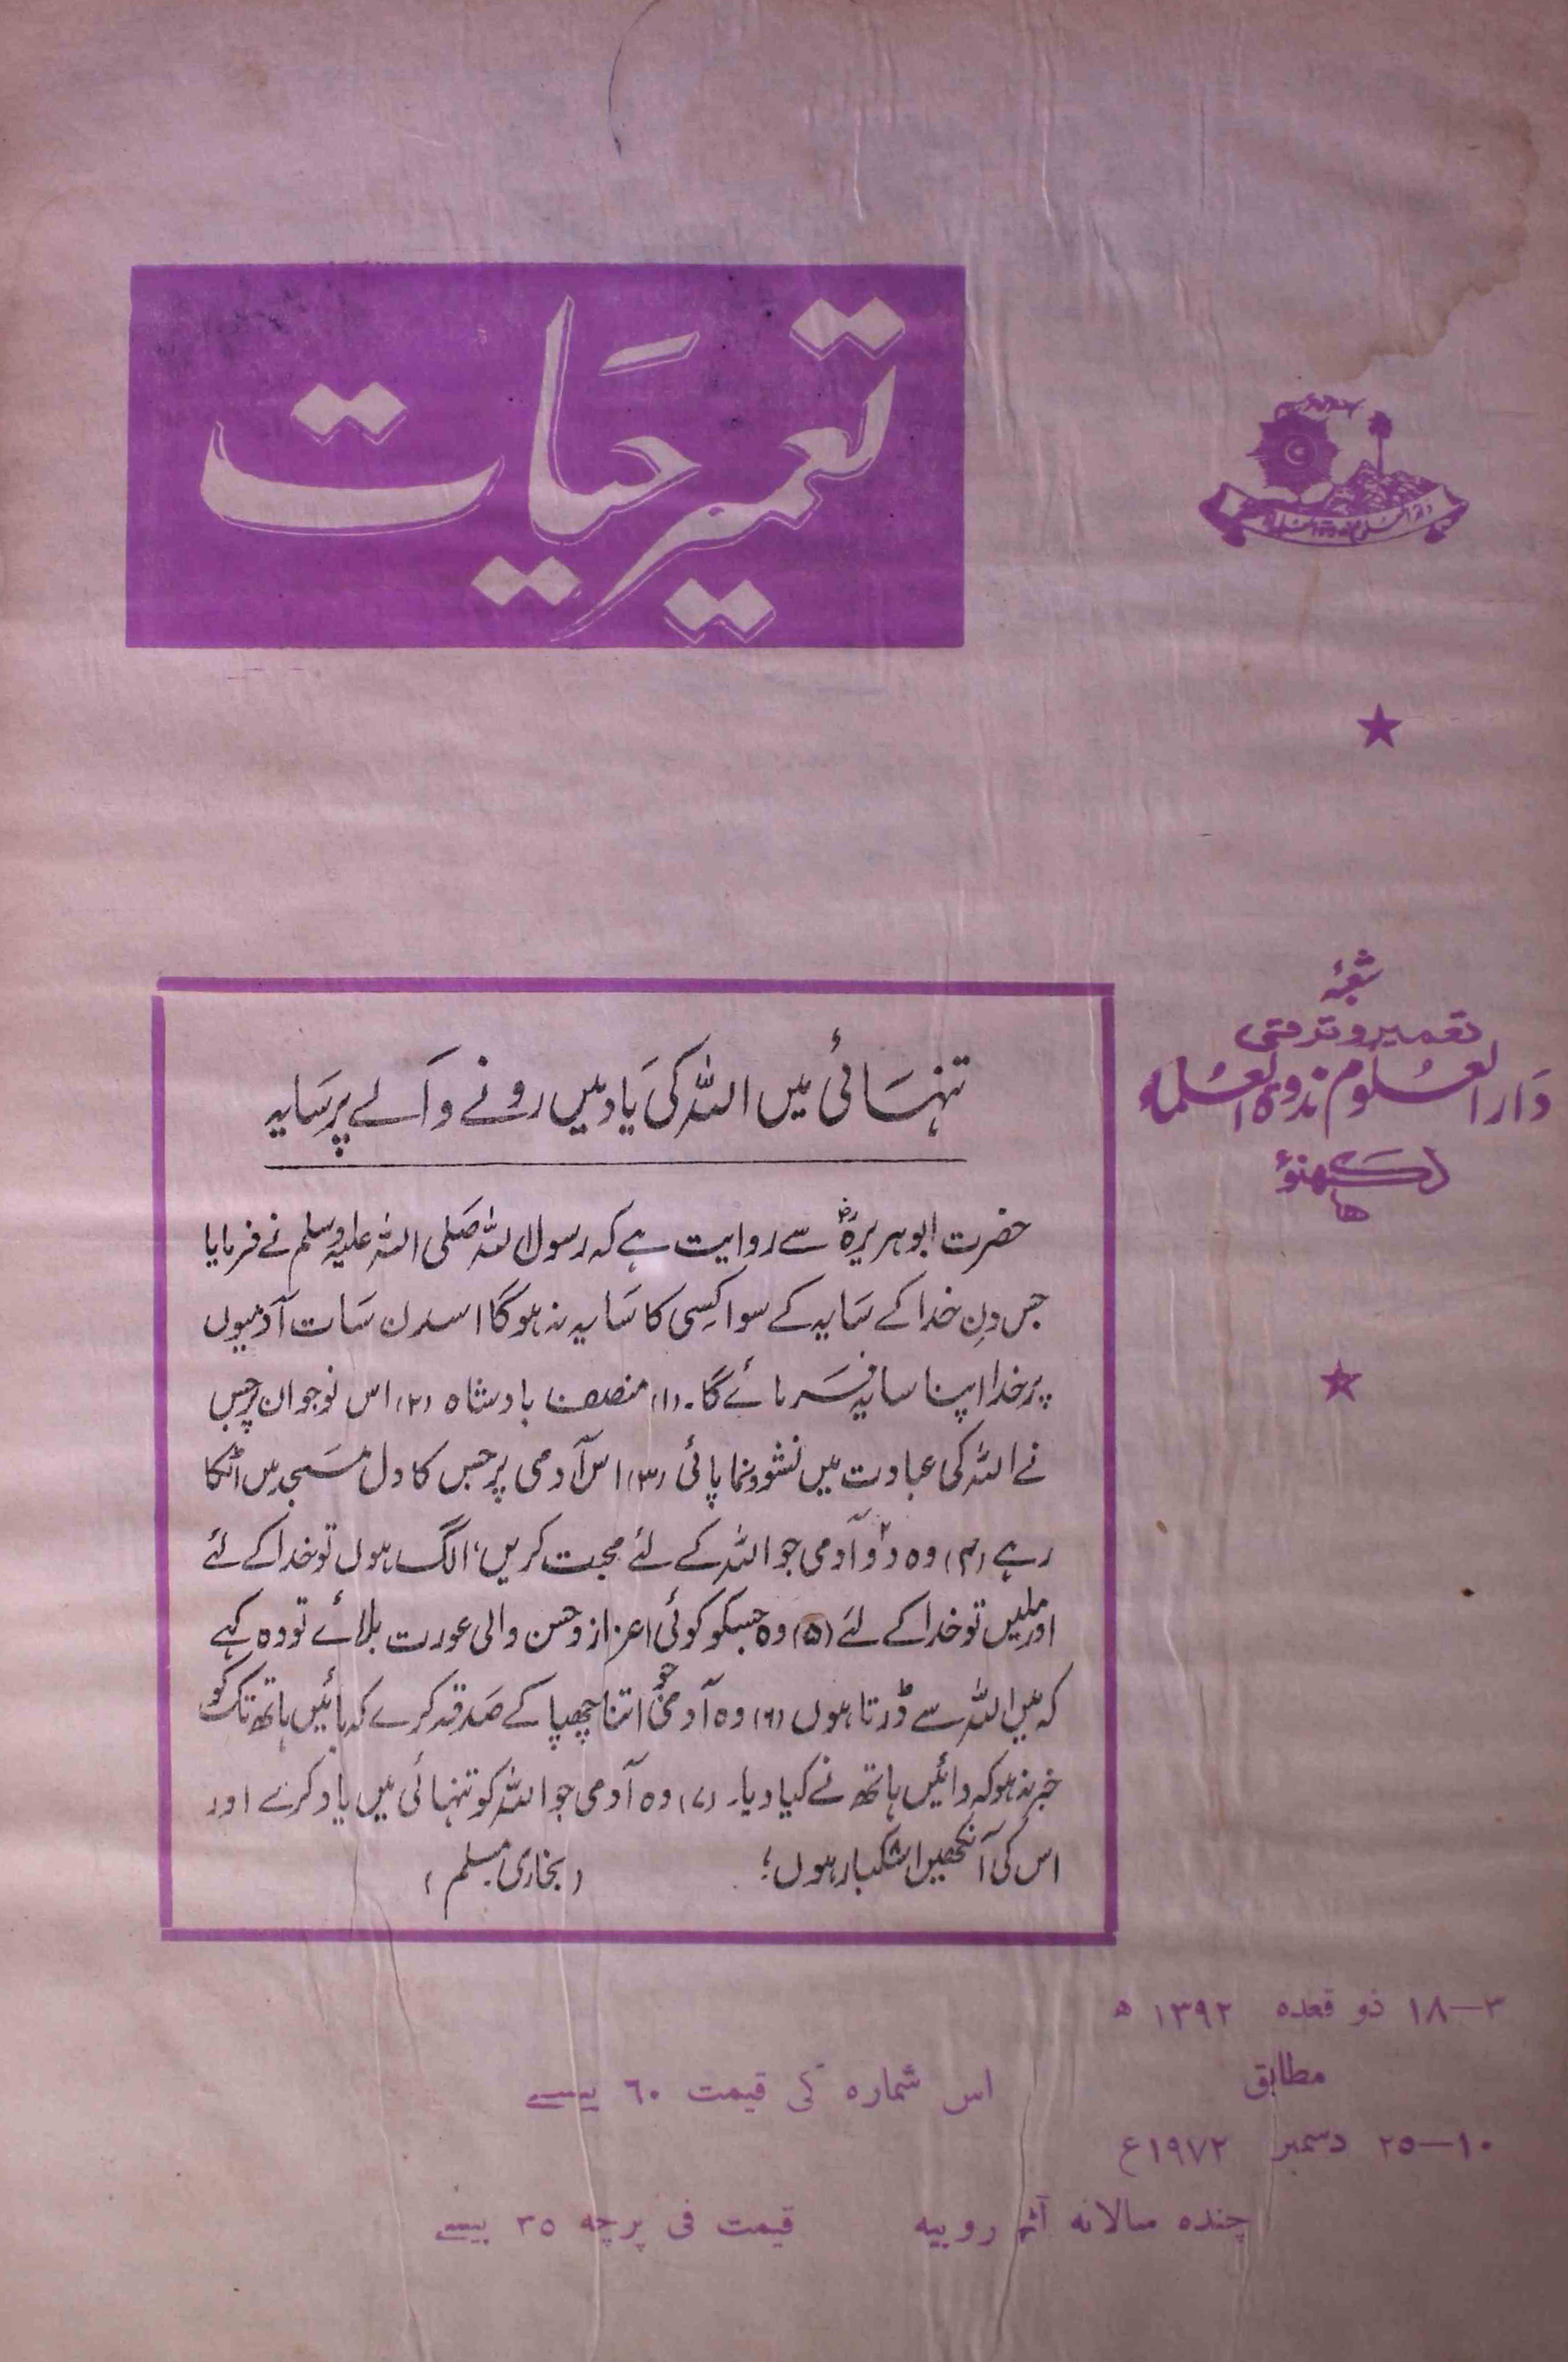 تعمیر حیات
شعبۂ
تعمیر و ترقی
دارالعلوم ندوۃ العلماء
لکھنؤ
تنہائی میں اللہ کی یاد میں رونے والے پر سایہ
حضرت ابوہریرہؓ سے روایت ہے کہ رسول اللہ صلی اللہ علیہ وسلم نے فرمایا
جس دن خدا کے سایہ کے سوا کسی کا سایہ نہ ہوگا اسدن سات آدمیوں
پر خدا اپنا سایہ فرمائے گا۔ (۱) منصف بادشاہ (۲) اس نوجوان پر جس
نے اللہ کی عبادت میں نشوونما پائی (۳) اس آدمی پر جس کا دل مسجد میں اٹکا
رہے (۴) وہ دو آدمی جو اللہ کے لئے محبت کریں، الگ ہوں تو خدا کے لئے
اور ملیں تو خدا کے لئے (۵) وہ جسکو کوئی اعزاز و حسن والی عورت بلائے تو وہ کہے
کہ میں اللہ سے ڈرتا ہوں (۶) وہ آدمی جو اتنا چھپا کے صدقہ کرے کہ بائیں ہاتھ تک کو
خبر نہ ہو کہ دائیں ہاتھ نے کیا دیا۔ (۷) وہ آدمی جو اللہ کو تنہائی میں یاد کرے اور
اس کی آنکھیں اشکبار ہوں؛ (بخاری مسلم)
۳—۱۸ ذو قعدہ ۱۳۹۲ ھ
مطابق
۱۰—۲۵ دسمبر ۱۹۷۲ع
اس شمارہ کی قیمت ۶۰ پیسے
چندہ سالانہ آٹھ روپیہ قیمت فی پرچہ ۳۵ پیسے